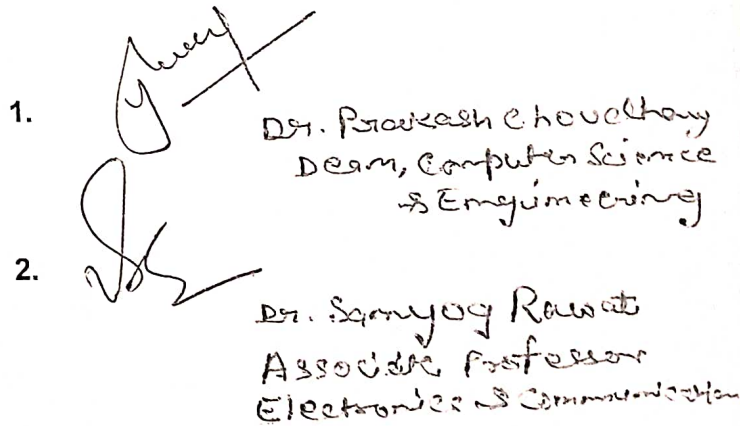 1.
Dr. Prakash Choudhary
Dean, Computer Science
& Engineering
2.
Dr. Sanyog Rawat
Associate Professor
Electronics & Communication